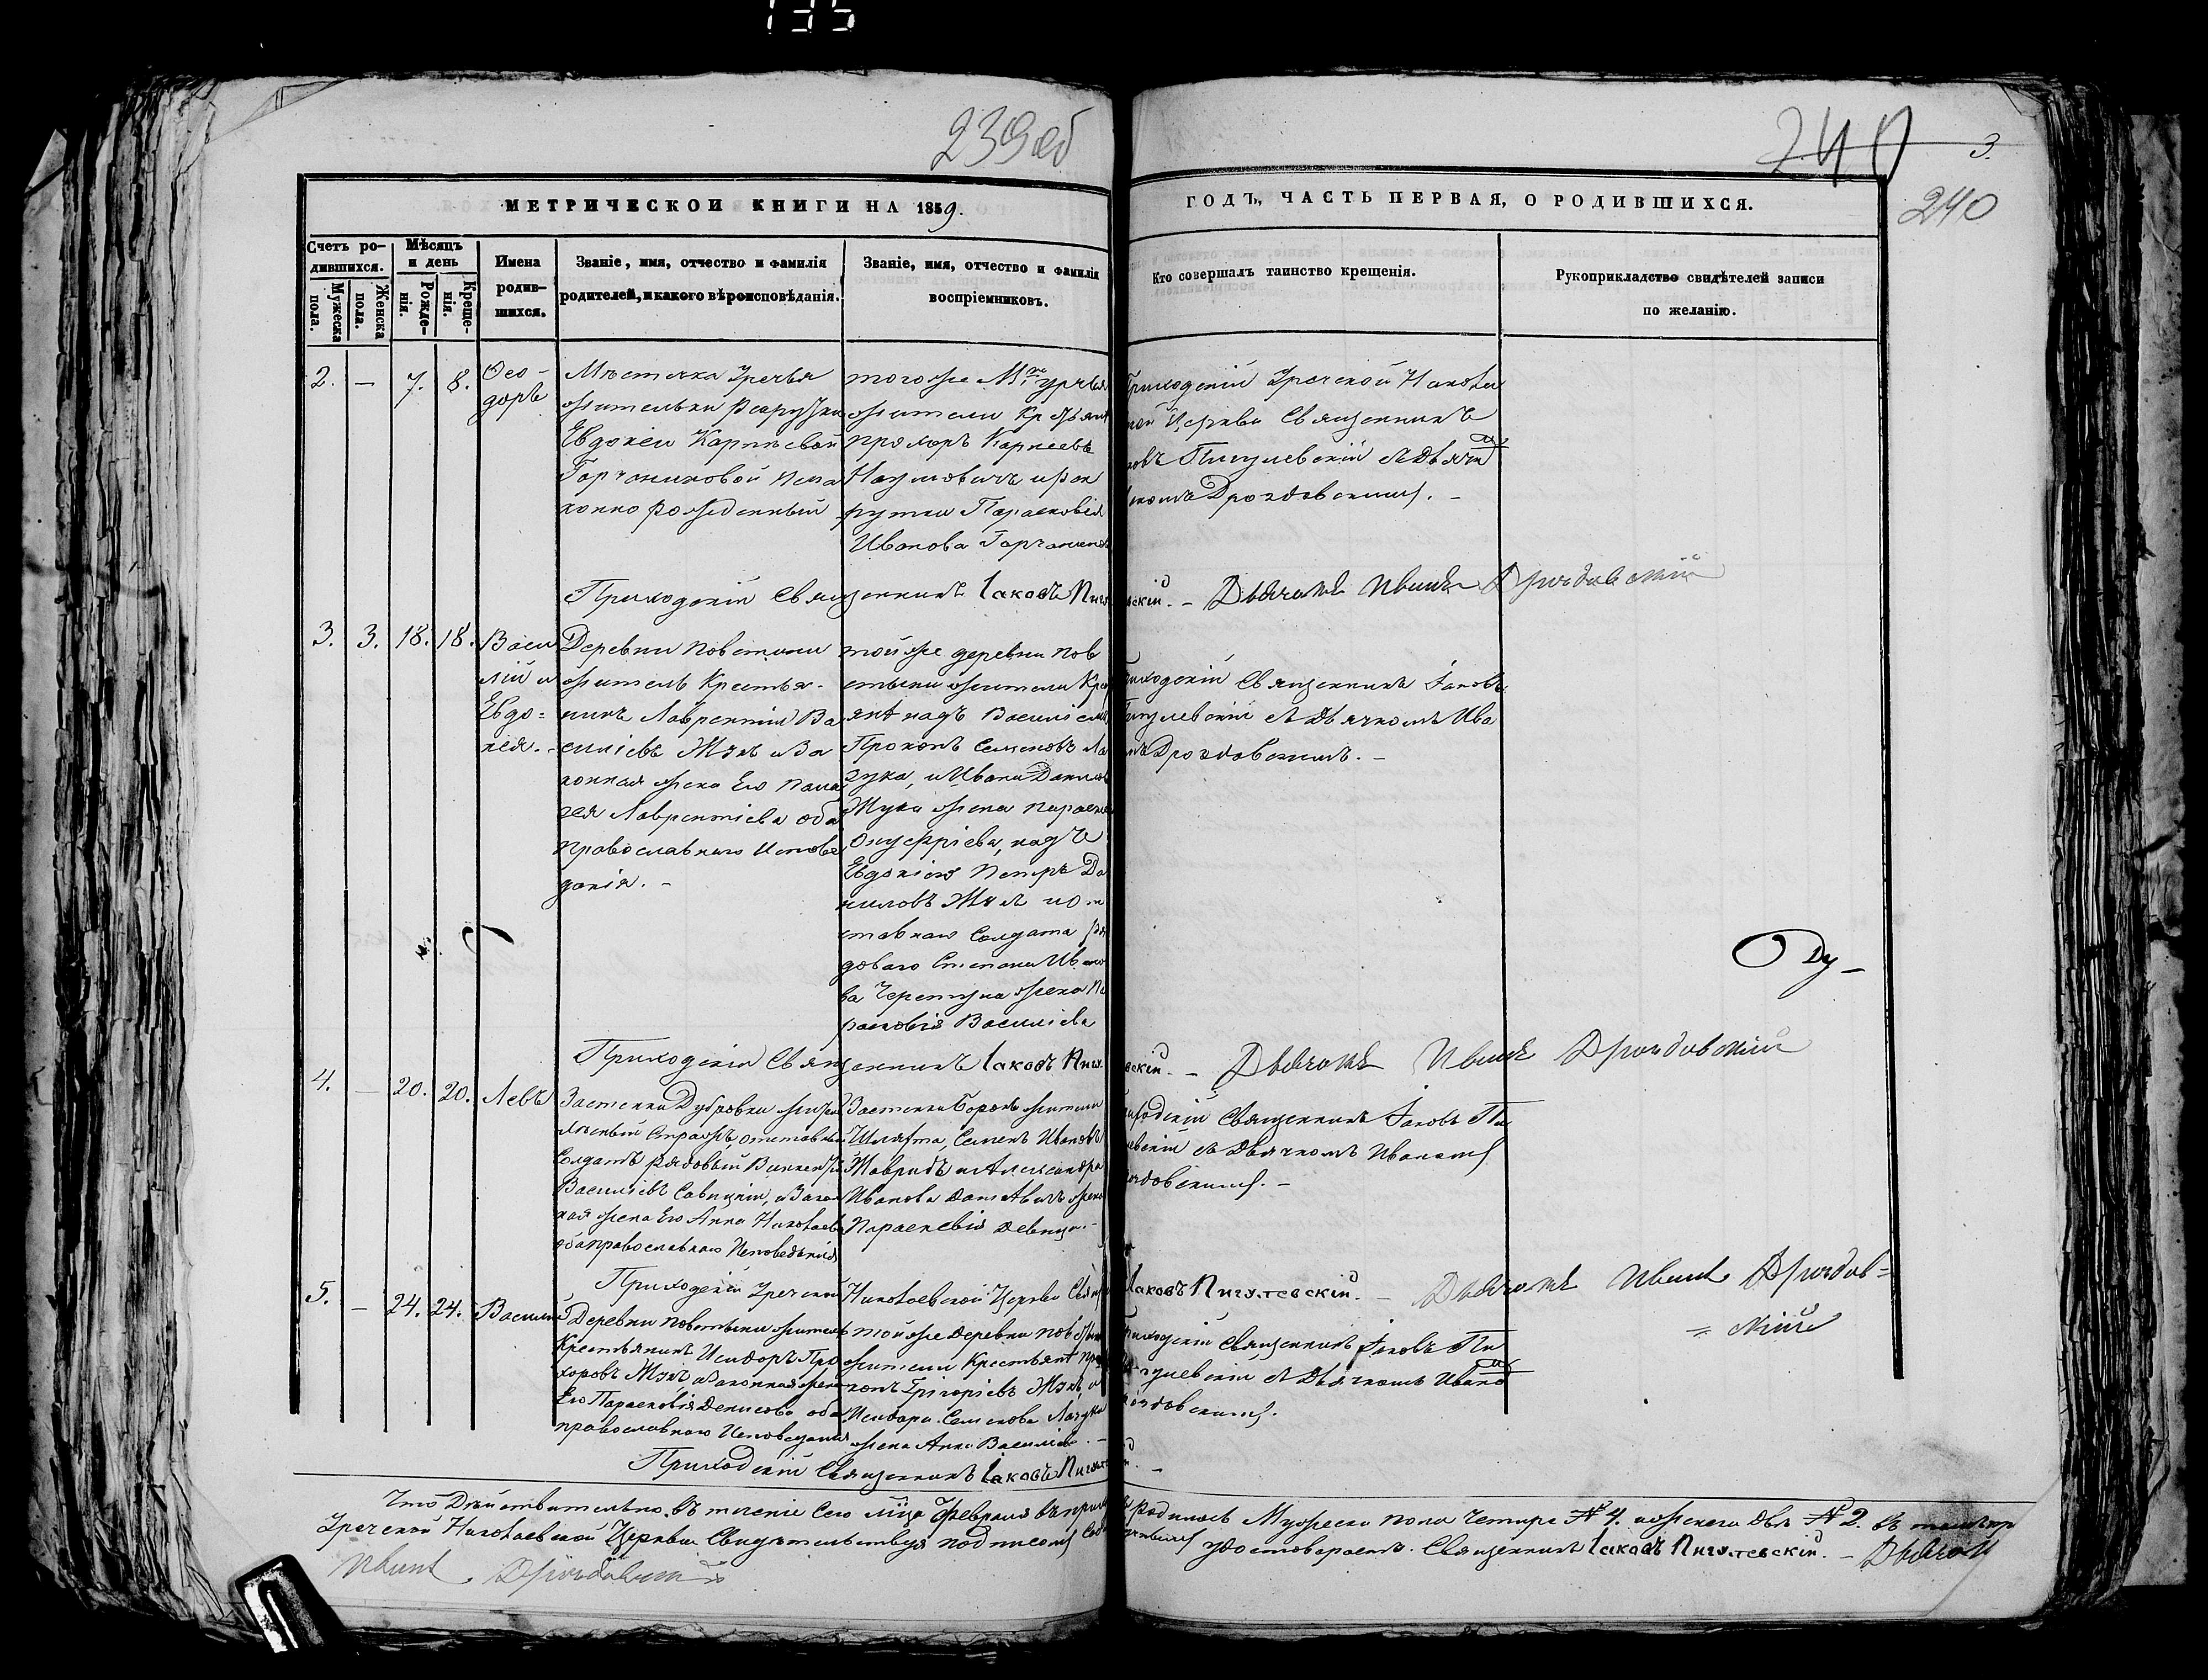 135
239 об
240
3.
240
МЕТРИЧЕСКОЙ КНИГИ НА 1859.
ГОДЪ, ЧАСТЬ ПЕРВАЯ, О РОДИВШИХСЯ.
Счетъ ро-
дившихся.
Мужеска
пола.
Женска
пола.
Мѣсяцъ
и день
Рожде-
нія.
Креще-
нія.
Имена
родив-
шихся.
Званіе, имя, отчество и фамилія
родителей, и какого вѣроисповѣданія.
Званіе, имя, отчество и фамилія
воспріемниковъ.
Кто совершалъ таинство крещенія.
Рукоприкладство свидѣтелей записи
по желанію.
2. — 7. 8.
Ѳео-
доръ
Мѣстечка Уречья
жительки
Евдокіи Карпѣевой
Горчаниковой Неза
конно рожденный
тогоже Мка Уречья
жители Крестьян
Прохоръ Карпеевъ
Наумовичъ и рек
рутки Парасковія
Иванова Горчаников
Приходскій Уречской Никола
ной Церкви Священникъ
ковъ Пигулевскій съ Дьячк
Дроздовскимъ. –
Приходскій Священникъ Іаковъ Пигул
вскій. – Дьячокъ Иванъ Дроздовскій
3. 3. 18. 18.
Васи
лій и
Евдо=
кія. –
Деревни Повстыни
житель Крестья-
нинъ Лаврентій Ва
силіевъ Жукъ и За
конная жена Его Пела
гея Лаврентіева оба
православнаго Исповѣ
данія. –
тойже деревни Пов
стыни жители Крес
янѣ надъ Василіемъ
Прокопъ Семеновъ Ла
зука, и Ивана Данилов
Жука жена Параско
Онуфріева, надъ
Евдокіею Петръ Да
ниловъ Жукъ и От
ставнаго Солдата ря
доваго Степана Ивано
ва Черетуна жена Па
расковія Василіева
риходскій Священникъ Іаковъ
Пигулевскій съ Дьячкомъ Ива
нъ Дроздовскимъ. –
О Ду–
Приходскій Священникъ Іаковъ Пигул
вскій. – Дьячокъ Иванъ Дроздовскій
4. — 20. 20. Левъ
Застенка Дубровки
лѣсный Стражъ, отставный
Солдатъ рядовый Викентій
Василіевъ Савицкій, и Закон
ная жена Его Анна Николаева
оба православнаго Исповѣданія
Застенка Борокъ жители
Шляхта, Семенъ Ивановъ
Жавридъ и Александра
Иванова
Параскевія Девица. –
риходскій Священникъ Іаковъ Пи
левскій съ Дьячкомъ Иваномъ
оздовскимъ. –
Приходскій Уречской Николаевской Церкви Свящ
Іаковъ Пигулевскій. – Дьячокъ Иванъ Дроздов=
= скій
5. — 24. 24. Василій
Деревни Повстыни житель
Крестьянинъ Исидоръ Про
хоровъ Жукъ и Законная жена
Его Парасковія Денисова оба
православнаго Исповѣданія
тойже Деревни Повстыни
жители Крестьянѣ Про
копъ Григоріевъ Жукъ, и
Исидора Семенова Лазука
жена Анна Василіева. –
риходскій Священникъ Іаковъ Пи
гулевскій съ Дьячкомъ Ивано
роздовскимъ.
Приходскій Священникъ Іаковъ Пигулев
Что Дѣйствительно въ теченіе Сего мѣца Февраля въ прихо
родилось Мужеска пола Четыре № 4. и женскаго двѣ № 2. въ томъ пр
Уречской Николаевской Церкви Свидѣтельствуя подписомъ
удостовѣряемъ. Священникъ Іаковъ Пигулевскій. – Дьячокъ
Иванъ Дроздовскій